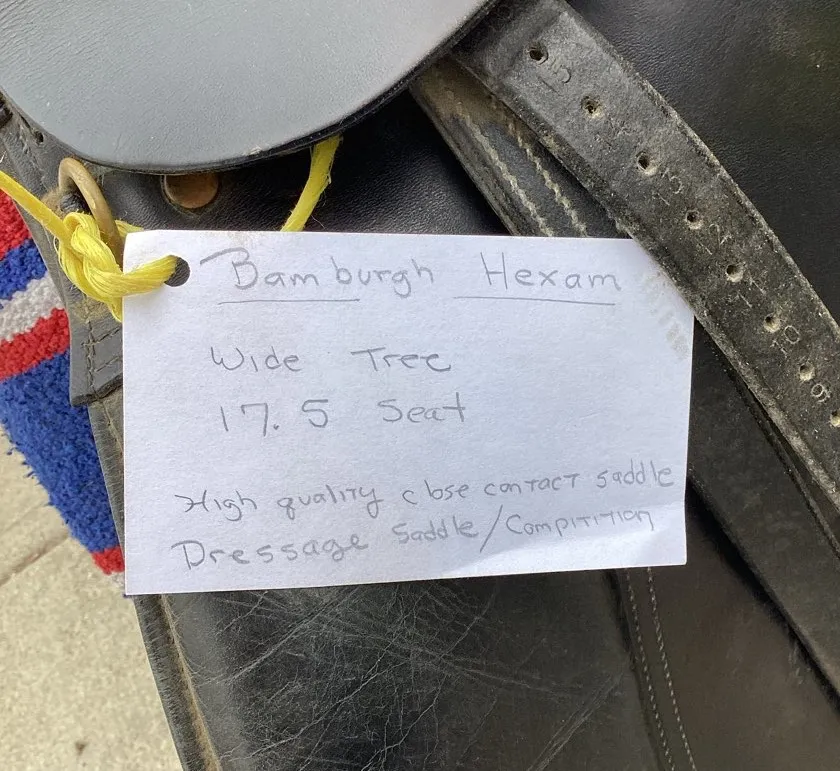 Bamburgh Hexam
Wide Tree
17.5 Seat
High quality close contact saddle
Dressage Saddle/Compitition